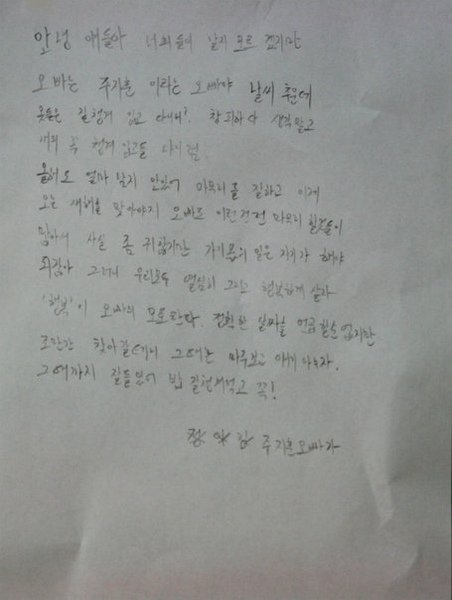 안녕 얘들아 너희들이 알지 모르 겠지만
오빠는 주지훈 이라는 오빠야 날씨 추운데
옷들은 잘챙겨 입고 다니니? 창피하다 생각말고
내의 꼭 챙겨 입고들 다니렴
올해도 얼마 남지 안았어 마무리를 잘하고 이제
오는 새해를 맞아야지 오빠도 이런건런 마무리 할것들이
많아서 사실 좀 귀찮지만 자기몫의 일은 자기가 해야
되잖아 그러니 우리모두 열심히 그리고 행복하게 살자
'행복'이 오빠의 모토란다. 정확한 날짜를 언급할순 없지만
조만간 찾아갈테니 그때는 마주보고 얘기 나누자.
그때까지 잘들있어 밥 잘챙겨먹고 꼭!
주지훈오빠가